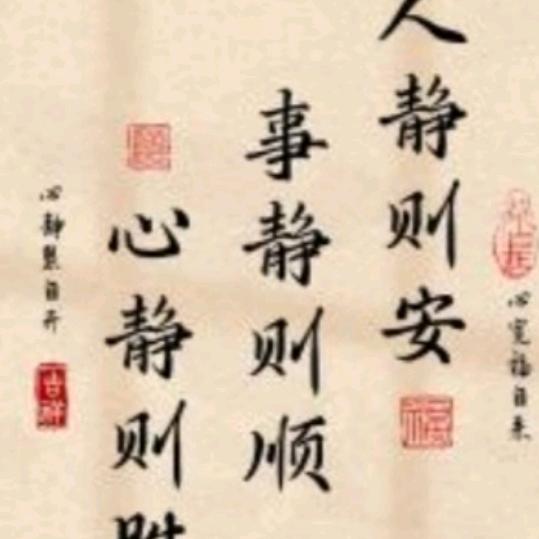 心宽福自来
人静则安
福
事静则顺
心静则
心静慧自开
吉祥